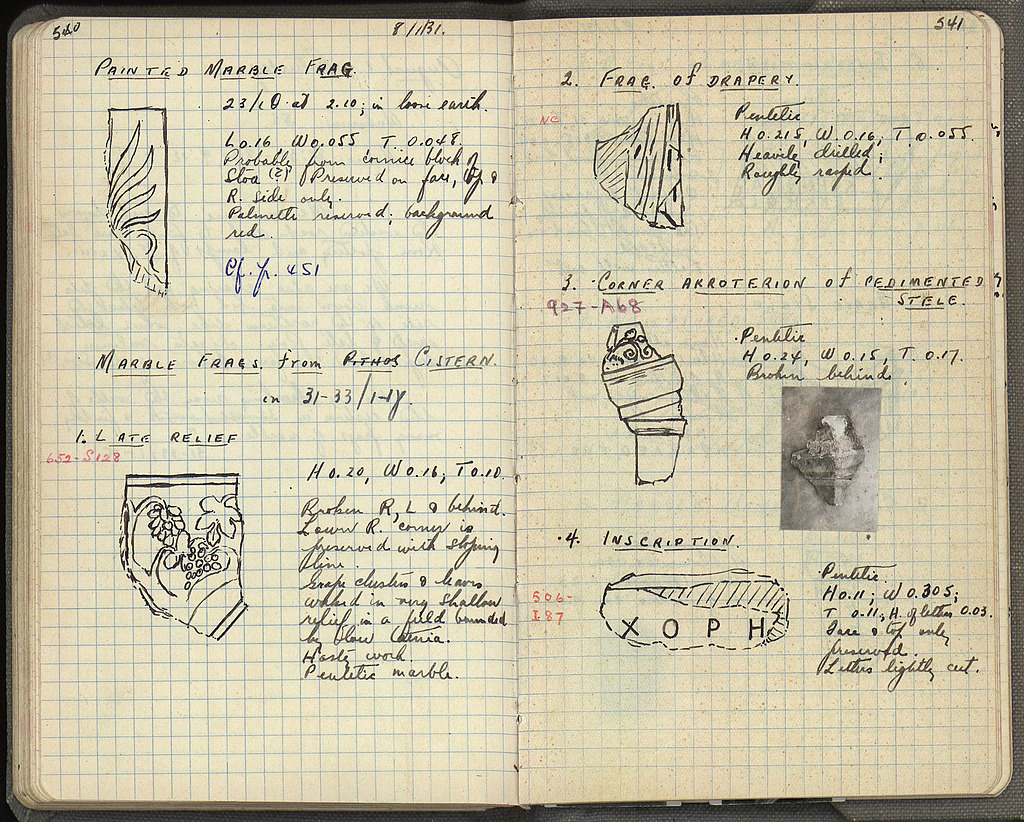 540
8/1/31.
PAINTED MARBLE FRAG.
23/10 at 2.10; in loose earth.
L 0.16 W 0.055 T. 0.048.
Probably from cornice block of
Stoa (?) Preserved on face, &
R. side only.
Palmette reserved; background
red.
Cf. p. 451
MARBLE FRAGS. from PITHOS CISTERN.
in 31-33/
1. LATE RELIEF
652-S128
H 0.20, W 0.16; T 0.10.
Broken R, L & behind.
Lower R. corner is
preserved with sloping
line.
Grape clusters & leaves
worked in very shallow
relief in a field bounded
by taenia.
Hasty work.
Pentelic marble.
541
2. FRAG. of DRAPERY.
NC
Pentelic
H 0.215, W 0.16, T 0.055.
Heavily drilled;
Roughly rasped.
3. CORNER AKROTERION of PEDIMENTED
STELE.
927-A68
Pentelic
H 0.24, W 0.15, T. 0.17.
Broken behind.
4. INSCRIPTION.
506-
I 87
Pentelic
H 0.11; W 0.305;
T 0.11; H of letters 0.03.
Face & top only
preserved.
Letters lightly cut.
Χ Ο Ρ Η